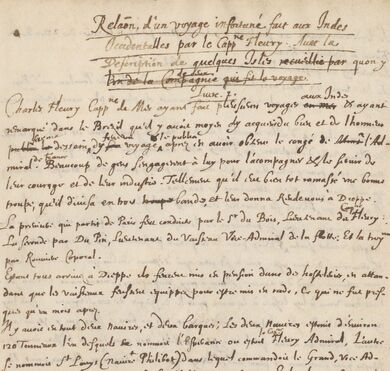 Relaõn, d'un voyage infortuné fait aux Indes
Occidentalles par le Cappne Fleury. Avec la
Description de quelques Isles recueillie par quon y
l'un de la Compagnie qui fist le voyage.
Charles Fleury Cappne de Mer ayant fait plusieurs voyages en Mer aux Indes & ayant
remarqué dans le Brezil qu'il y avoit moyen d'y acquerir du bien et de l'honneur
dessein, d'y voyage, apres en avoir obtenu le congé de l'Ad=
miral de France Beaucoup de gens s'engagerent à luy pour l'accompagner & le servir de
leur courage et de leur industrie. Tellement qu'il eut bien tost ramassé une bonne
troupe qu'il divisa en trois bandes, et leur donna Rendevous à Dieppe.
La premiere qui partit de Paris feut conduite par le Sr du Bois, Lieutenant du Cappne Fleury.
La seconde par Du Pin, Lieutenant du Vaisseau Vice Admiral de la flotte; Et la troi=
par Romiere Corporal.
Estans tous arrivez à Dieppe ils feurent mis en pension dans des hosteleries, en atten=
dant que les vaisseaux feussent equippez pour estre mis en rade. Ce qui ne fut prest
que un mois apres.
Il y avoit en tout deux navires, et deux barques; Les deux Navires estoient d'environ
120 Tonneaux l'un desquels se nommoit l'Esperance ou estoit le Cappne Fleury Admiral, L'autre
se nommoit St Louys (navire Philibot) dans lequel commandoit le Grand, Vice Ad=